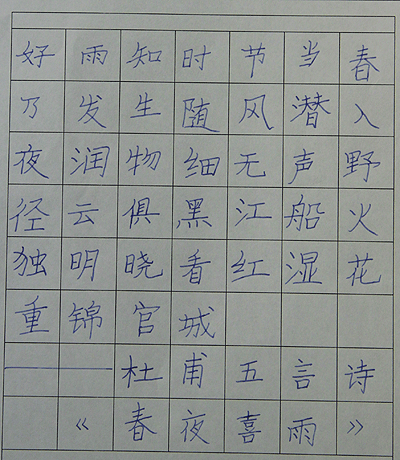 好雨知时节当春
乃发生随风潜入
夜润物细无声野
径云俱黑江船火
独明晓看红湿花
重锦官城
——杜甫五言诗
《春夜喜雨》